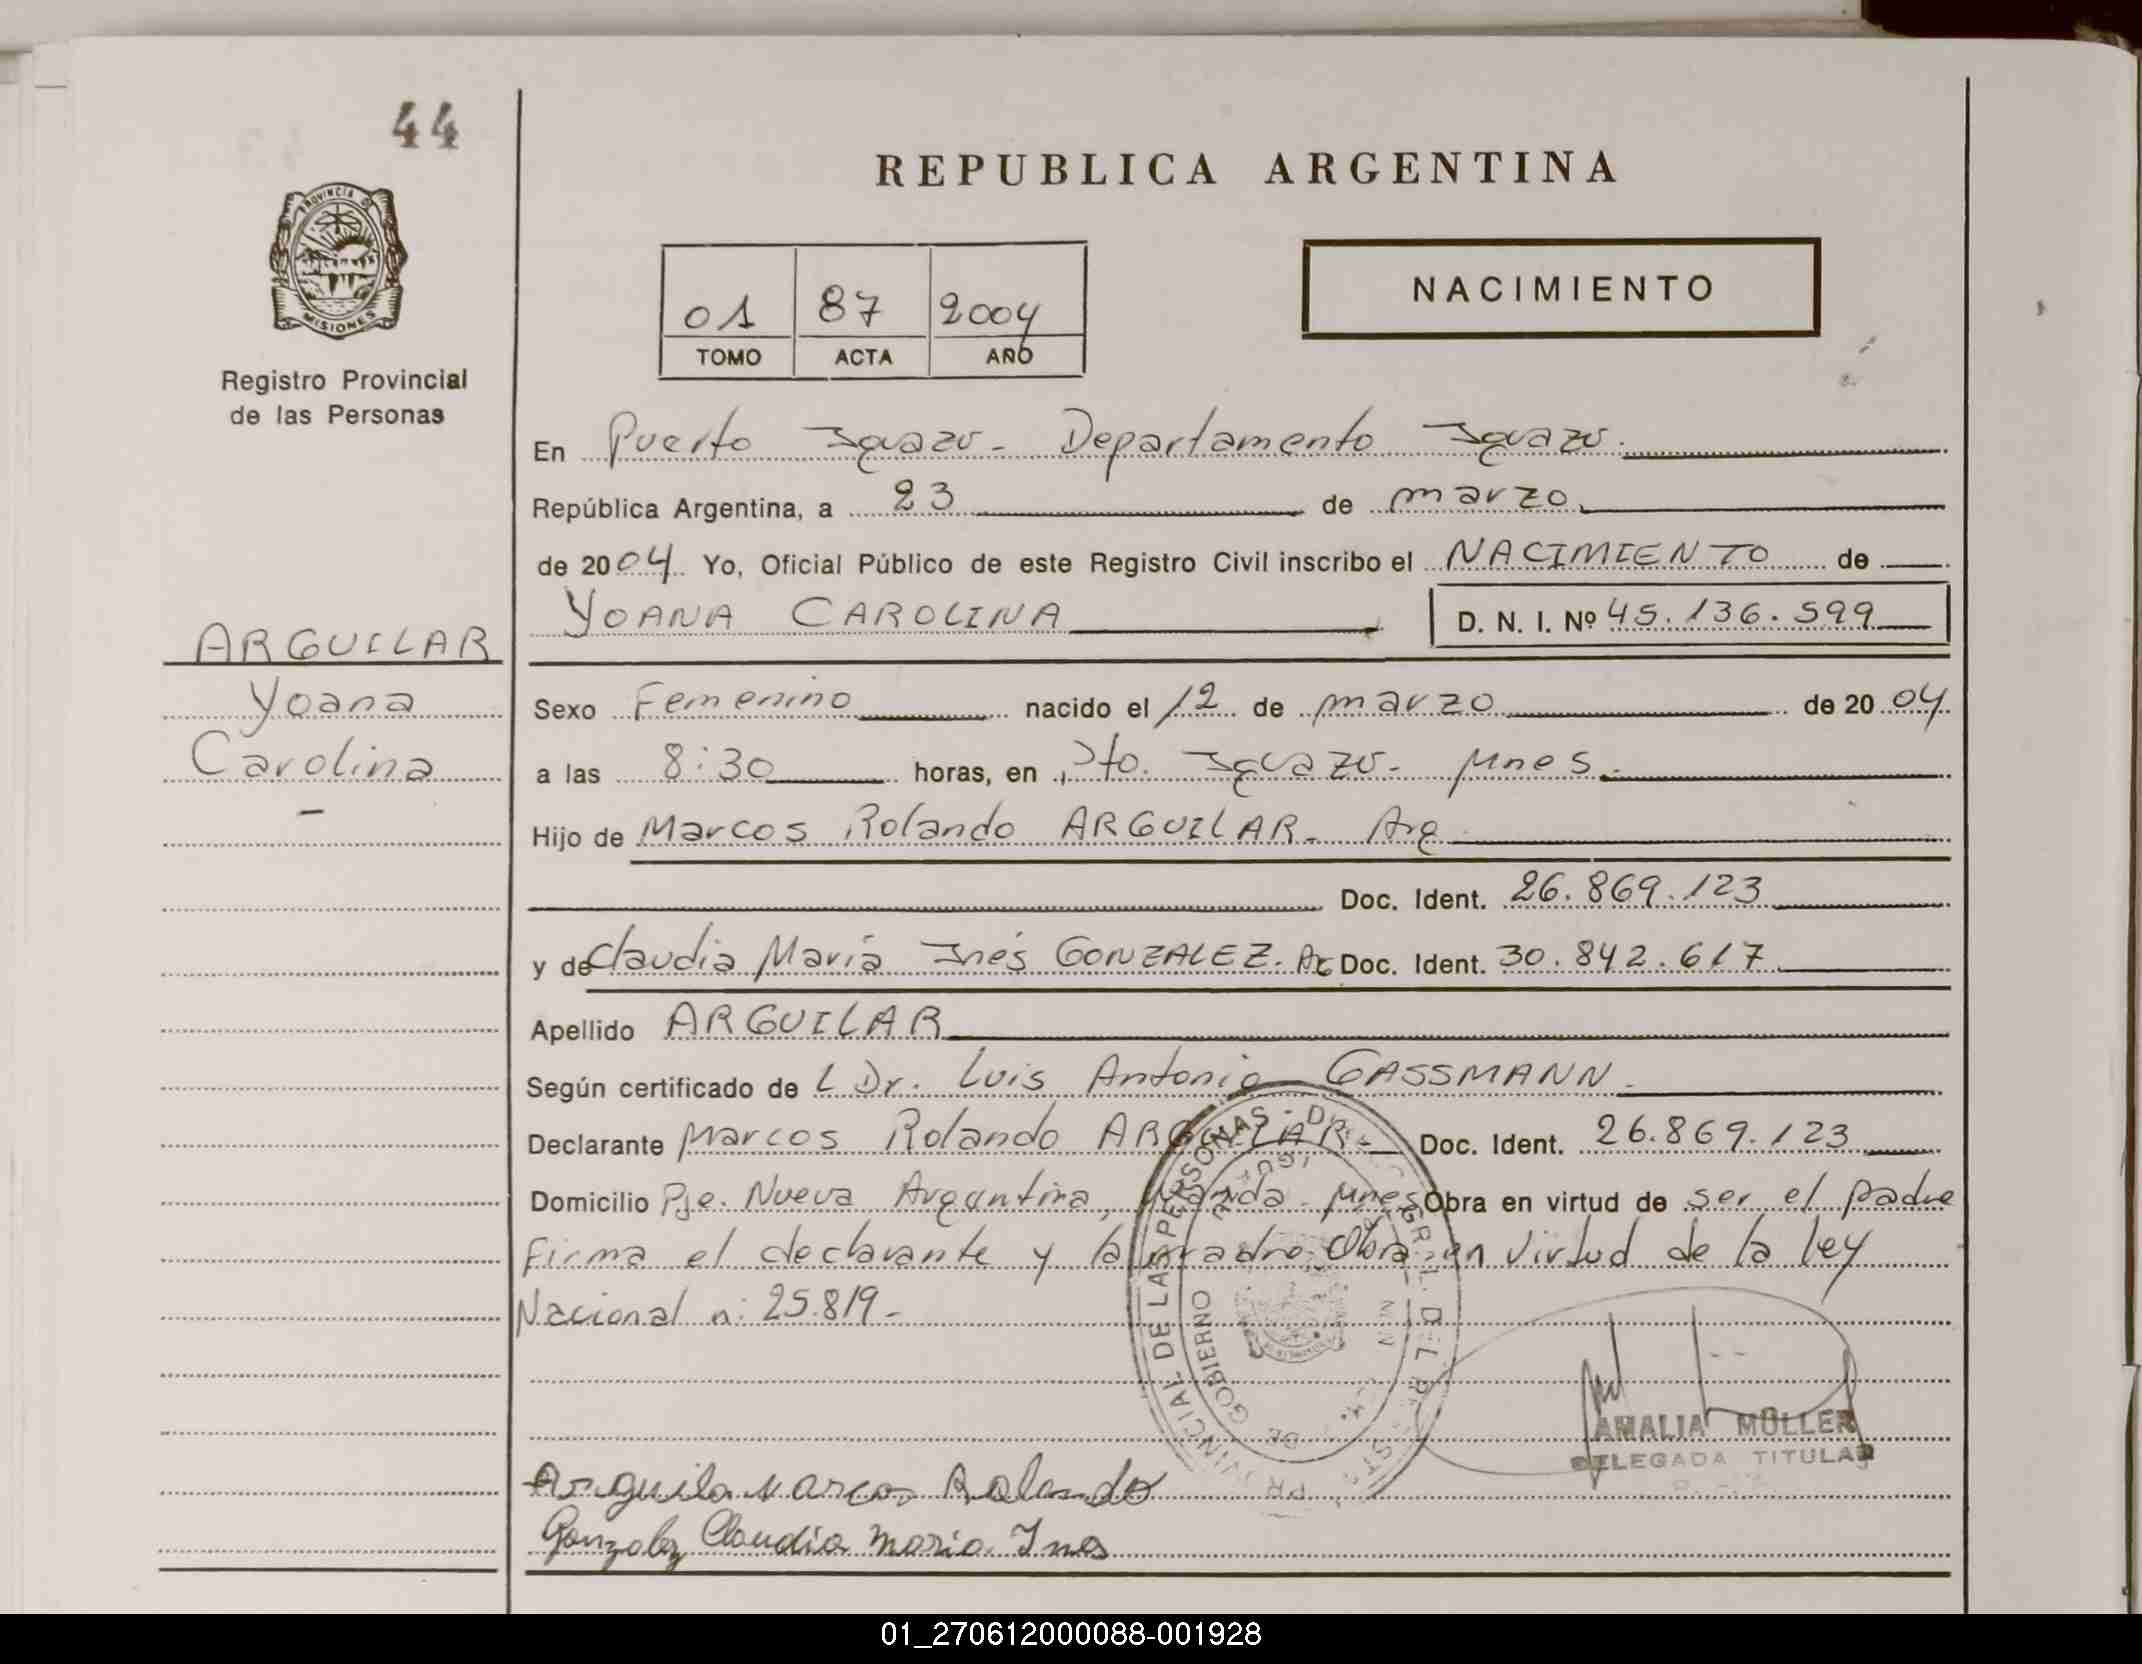 44
PROVINCIA DE
MISIONES
Registro Provincial
de las Personas
REPUBLICA ARGENTINA
01 87 2004
TOMO ACTA AÑO
NACIMIENTO
En Puerto Iguazu- Departamento Iguazu.
República Argentina, a 23 de marzo
de 2004 Yo, Oficial Público de este Registro Civil inscribo el NACIMIENTO de
YOANA CAROLINA D. N. I. Nº 45.136.599
ARGUILAR
Yoana
Carolina
Sexo Femenino nacido el 12 de marzo de 2004
a las 8:30 horas, en Pto. Iguazu- Mnes.
Hijo de Marcos Rolando ARGUILAR- Arg
Doc. Ident. 26.869.123
y de Claudia María Inés GONZALEZ. Ar Doc. Ident. 30.842.617
Apellido ARGUILAR
Según certificado de L Dr. Luis Antonio GASSMANN.
Declarante Marcos Rolando ARGUILAR- Doc. Ident. 26.869.123
Domicilio Pje. Nueva Argentina, Wanda- Mnes Obra en virtud de ser el padre
Firma el declarante y la madre. Obra en virtud de la ley
Nacional n: 25.819-
PROVINCIAL DE LAS PERSONAS -
GOBIERNO
AMALIA MÜLLER
DELEGADA TITULAR
Arguilar Marcos Rolando
Gonzalez Claudia Maria Ines
01_270612000088-001928